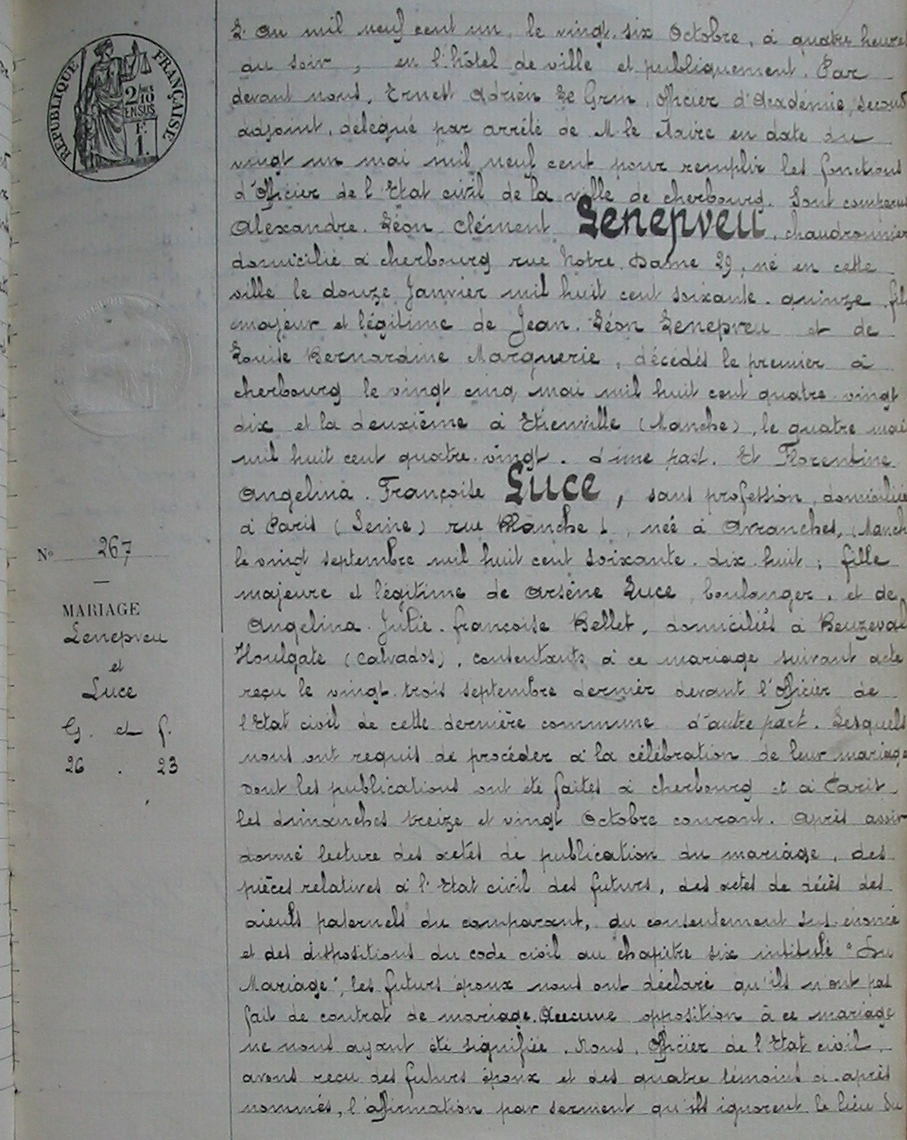 RÉPUBLIQUE FRANÇAISE
2/10ES
EN SUS
F.
1.
L'An mil neuf cent un, le vingt-six Octobre, à quatre heures
du soir, en l'hôtel de ville et publiquement. Par
devant nous, Ernest Adrien Le Grin, officier d'Académie, second
adjoint, délégué par arrêté de M. le Maire en date du
vingt un mai mil neuf cent pour remplir les fonctions
d'Officier de l'Etat civil de la ville de cherbourg. Sont comparus
Alexandre. Léon. Clément Lenepveu, chaudronnier
domicilié à cherbourg rue Notre. Dame 29, né en cette
ville le douze Janvier mil huit cent soixante. quinze, fils
majeur et légitime de Jean. Léon Lenepveu et de
Louise Bernardine Marguerie, décédés le premier à
cherbourg le vingt cinq mai mil huit cent quatre vingt
dix et la deuxième à Etienville (Manche), le quatre mai
mil huit cent quatre-vingt. d'une part. Et Florentine
Angelina. Françoise Luce, sans profession, domiciliée
à Paris (Seine) rue Blanche 1, née à Avranches, (Manche
le vingt septembre mil huit cent soixante. dix huit; fille
majeure et légitime de Arsène Luce, boulanger, et de
Angelina. Julie. françoise Bellet, domiciliés à Beuzeval
Houlgate (Calvados), consentants à ce mariage suivant acte
reçu le vingt-trois septembre dernier devant l'Officier de
l'Etat civil de cette dernière commune d'autre part. Lesquels
nous ont requis de procéder à la célébration de leur mariage
dont les publications ont été faites à cherbourg et à Paris
les dimanches treize et vingt Octobre courant. Après avoir
donné lecture des actes de publication du mariage, des
pièces relatives à l'Etat civil des futurs, des actes de décès des
aieuls paternels du comparant, du consentement sus-énoncé
et des dispositions du code civil au chapitre six intitulé "Du
Mariage", les futurs époux nous ont déclaré qu'ils n'ont pas
fait de contrat de mariage. Aucune opposition à ce mariage
ne nous ayant été signifiée. Nous, Officier de l'Etat civil,
avons reçu des futurs époux et des quatre témoins ci-après
nommés, l'affirmation par serment qu'ils ignorent le lieu du
No 267
MARIAGE
Lenepveu
et
Luce
G. et f.
26 . 23